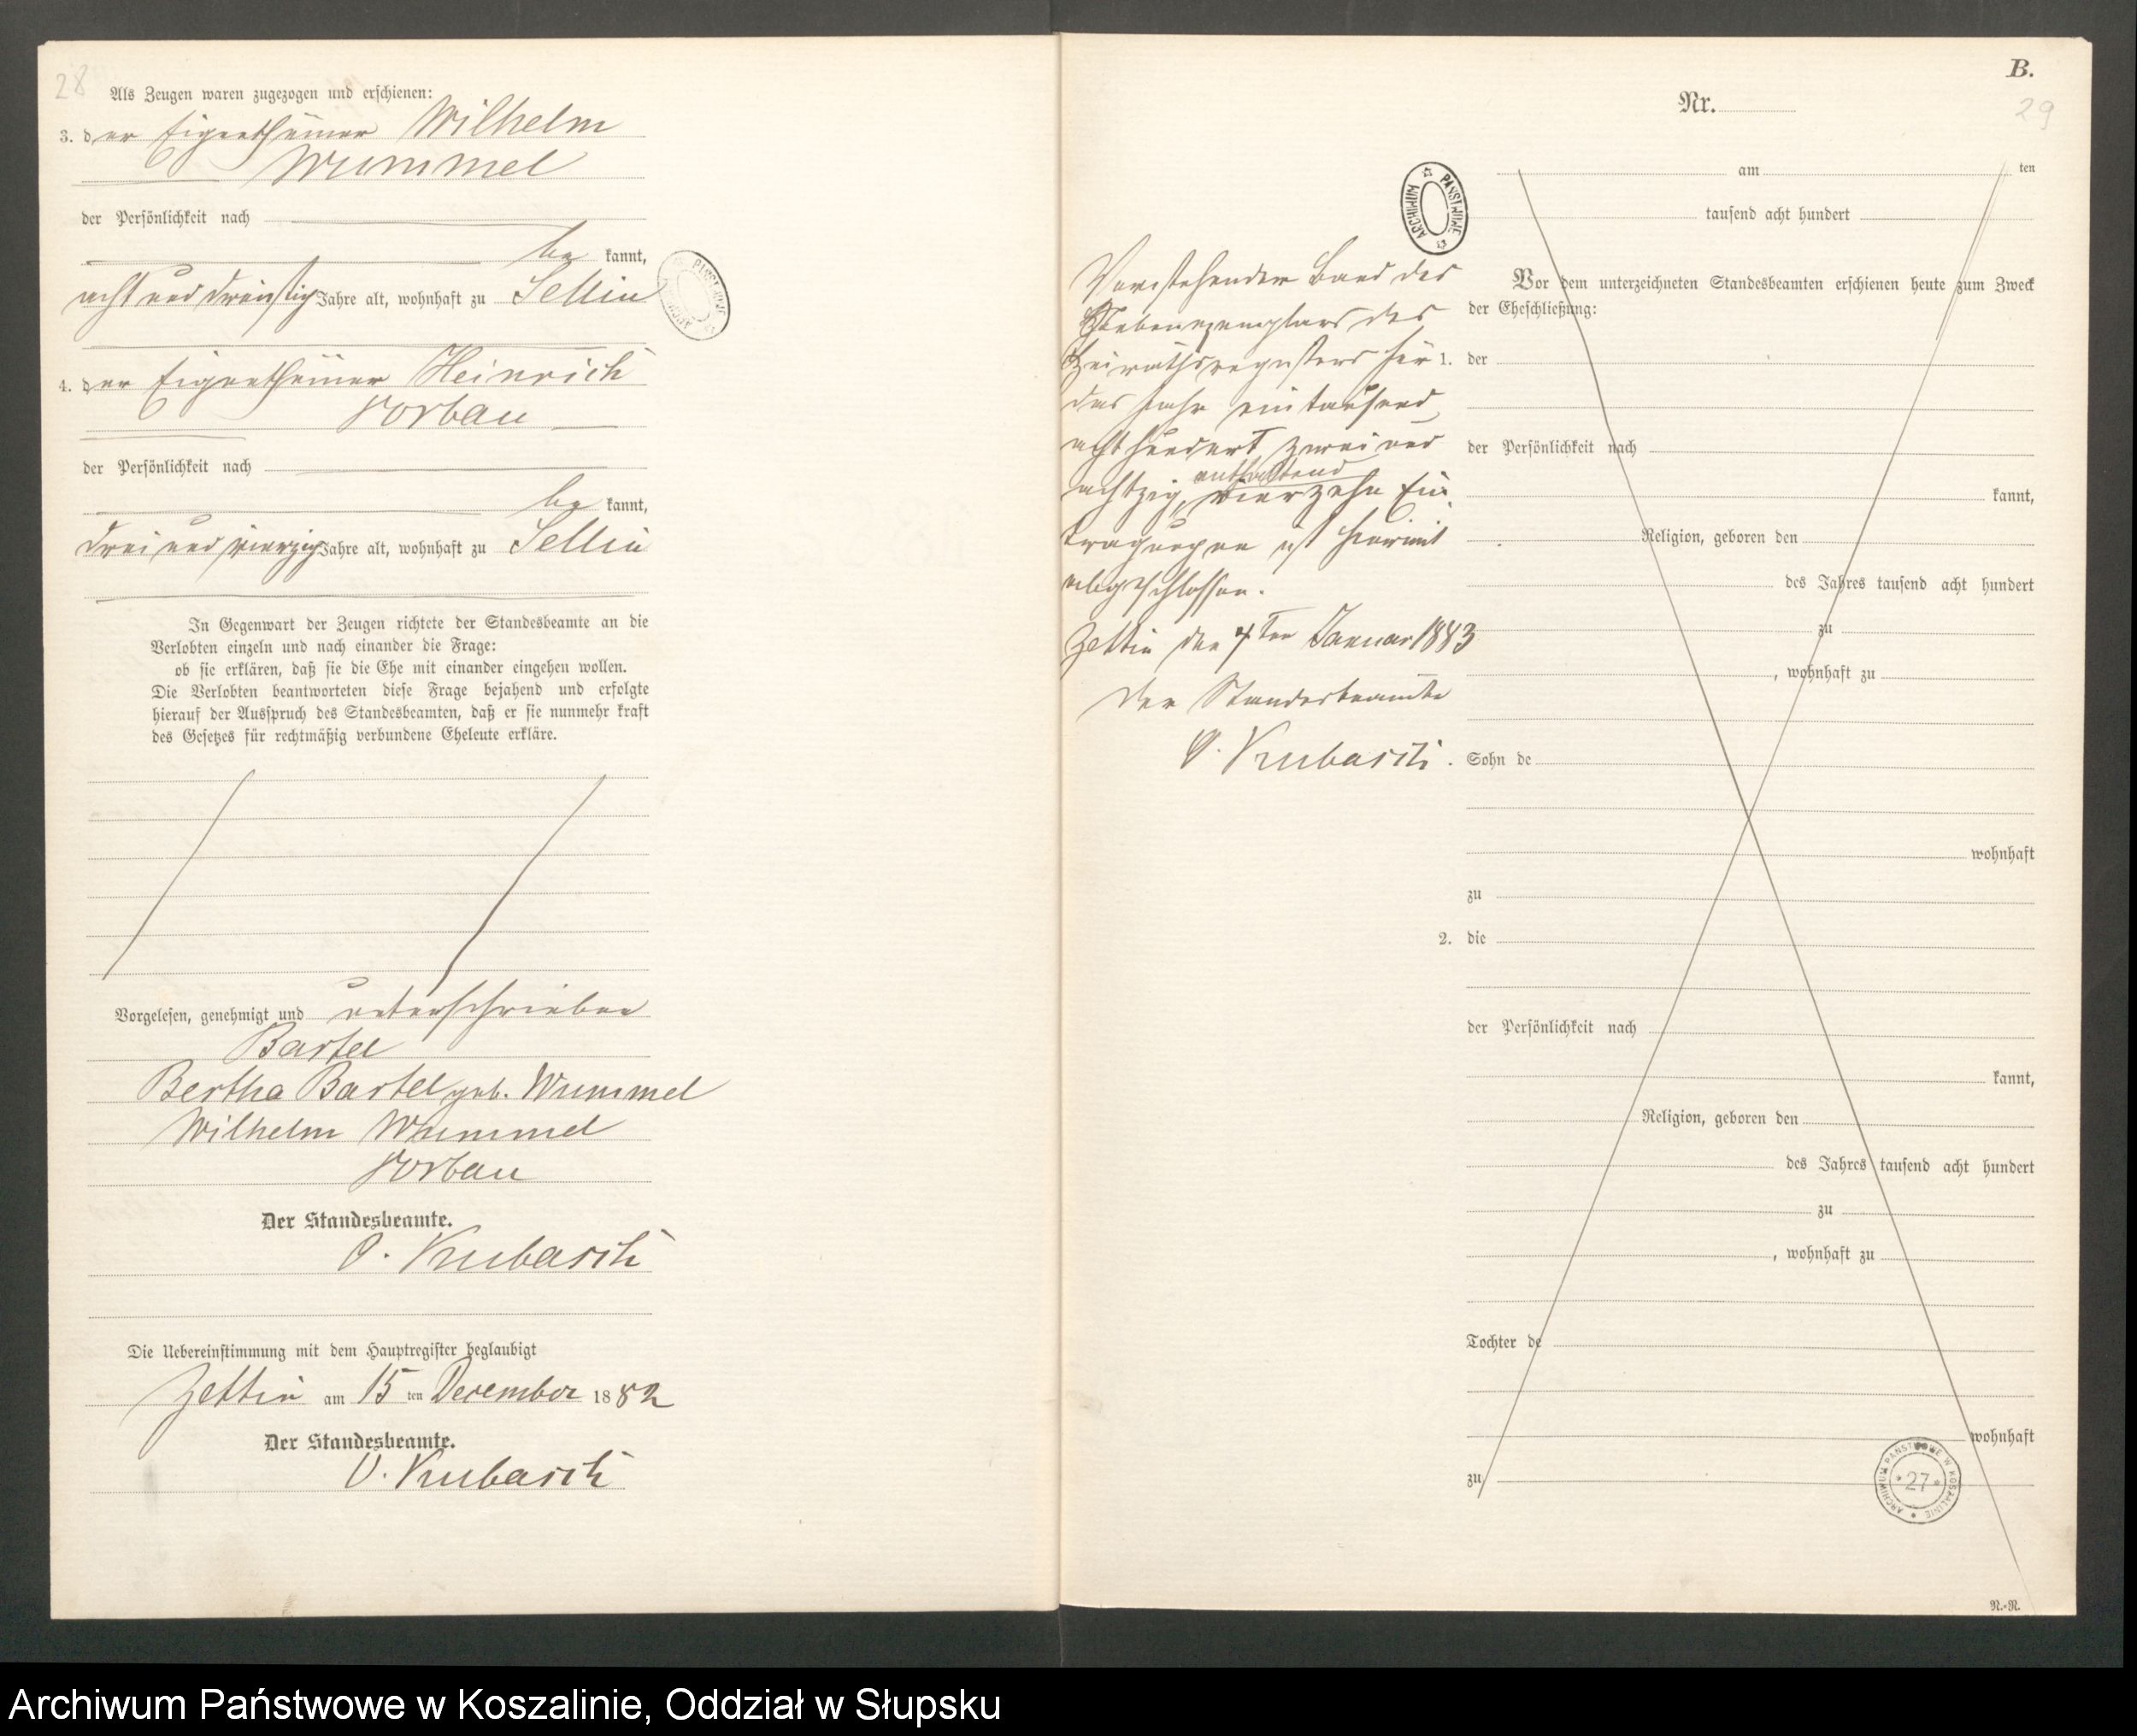 28
Als Zeugen waren zugezogen und erschienen:
3. der Eigenthümer Wilhelm
Wummel
der Persönlichkeit nach
be kannt,
acht und dreißig Jahre alt, wohnhaft zu Sellin
4. der Eigenthümer Heinrich
Vorbau
der Persönlichkeit nach
be kannt,
drei und vierzig Jahre alt, wohnhaft zu Sellin
In Gegenwart der Zeugen richtete der Standesbeamte an die
Verlobten einzeln und nach einander die Frage:
ob sie erklären, daß sie die Ehe mit einander eingehen wollen.
Die Verlobten beantworteten diese Frage bejahend und erfolgte
hierauf der Ausspruch des Standesbeamten, daß er sie nunmehr kraft
des Gesetzes für rechtmäßig verbundene Eheleute erkläre.
Vorgelesen, genehmigt und unterschrieben
Bartel
Bertha Bartel geb. Wummel
Wilhelm Wummel
Vorbau
Der Standesbeamte.
O. Kubasch
Die Uebereinstimmung mit dem Hauptregister beglaubigt
Zettin am 15 ten December 1882
Der Standesbeamte.
O. Kubasch
ARCHIWUM PAŃSTWOWE
B.
29
Nr.
ARCHIWUM PAŃSTWOWE
Vorstehender Band des
Nebenexemplars des
Heirathsregisters für
das Jahr eintausend
achthundert zwei und
achtzig, enthaltend vierzehn Ein-
tragungen ist hiermit
abgeschlossen.
Zettin den 4ten Januar 1883
Der Standesbeamte
O. Kubasch.
am ten
tausend acht hundert
Vor dem unterzeichneten Standesbeamten erschienen heute zum Zweck
der Eheschließung:
1. der
der Persönlichkeit nach
kannt,
Religion, geboren den
des Jahres tausend acht hundert
zu
, wohnhaft zu
Sohn de
wohnhaft
zu
2. die
der Persönlichkeit nach
kannt,
Religion, geboren den
des Jahres tausend acht hundert
zu
, wohnhaft zu
Tochter de
wohnhaft
zu
ARCHIWUM PAŃSTWOWE W KOSZALINIE
27
N.-N.
Archiwum Państwowe w Koszalinie, Oddział w Słupsku